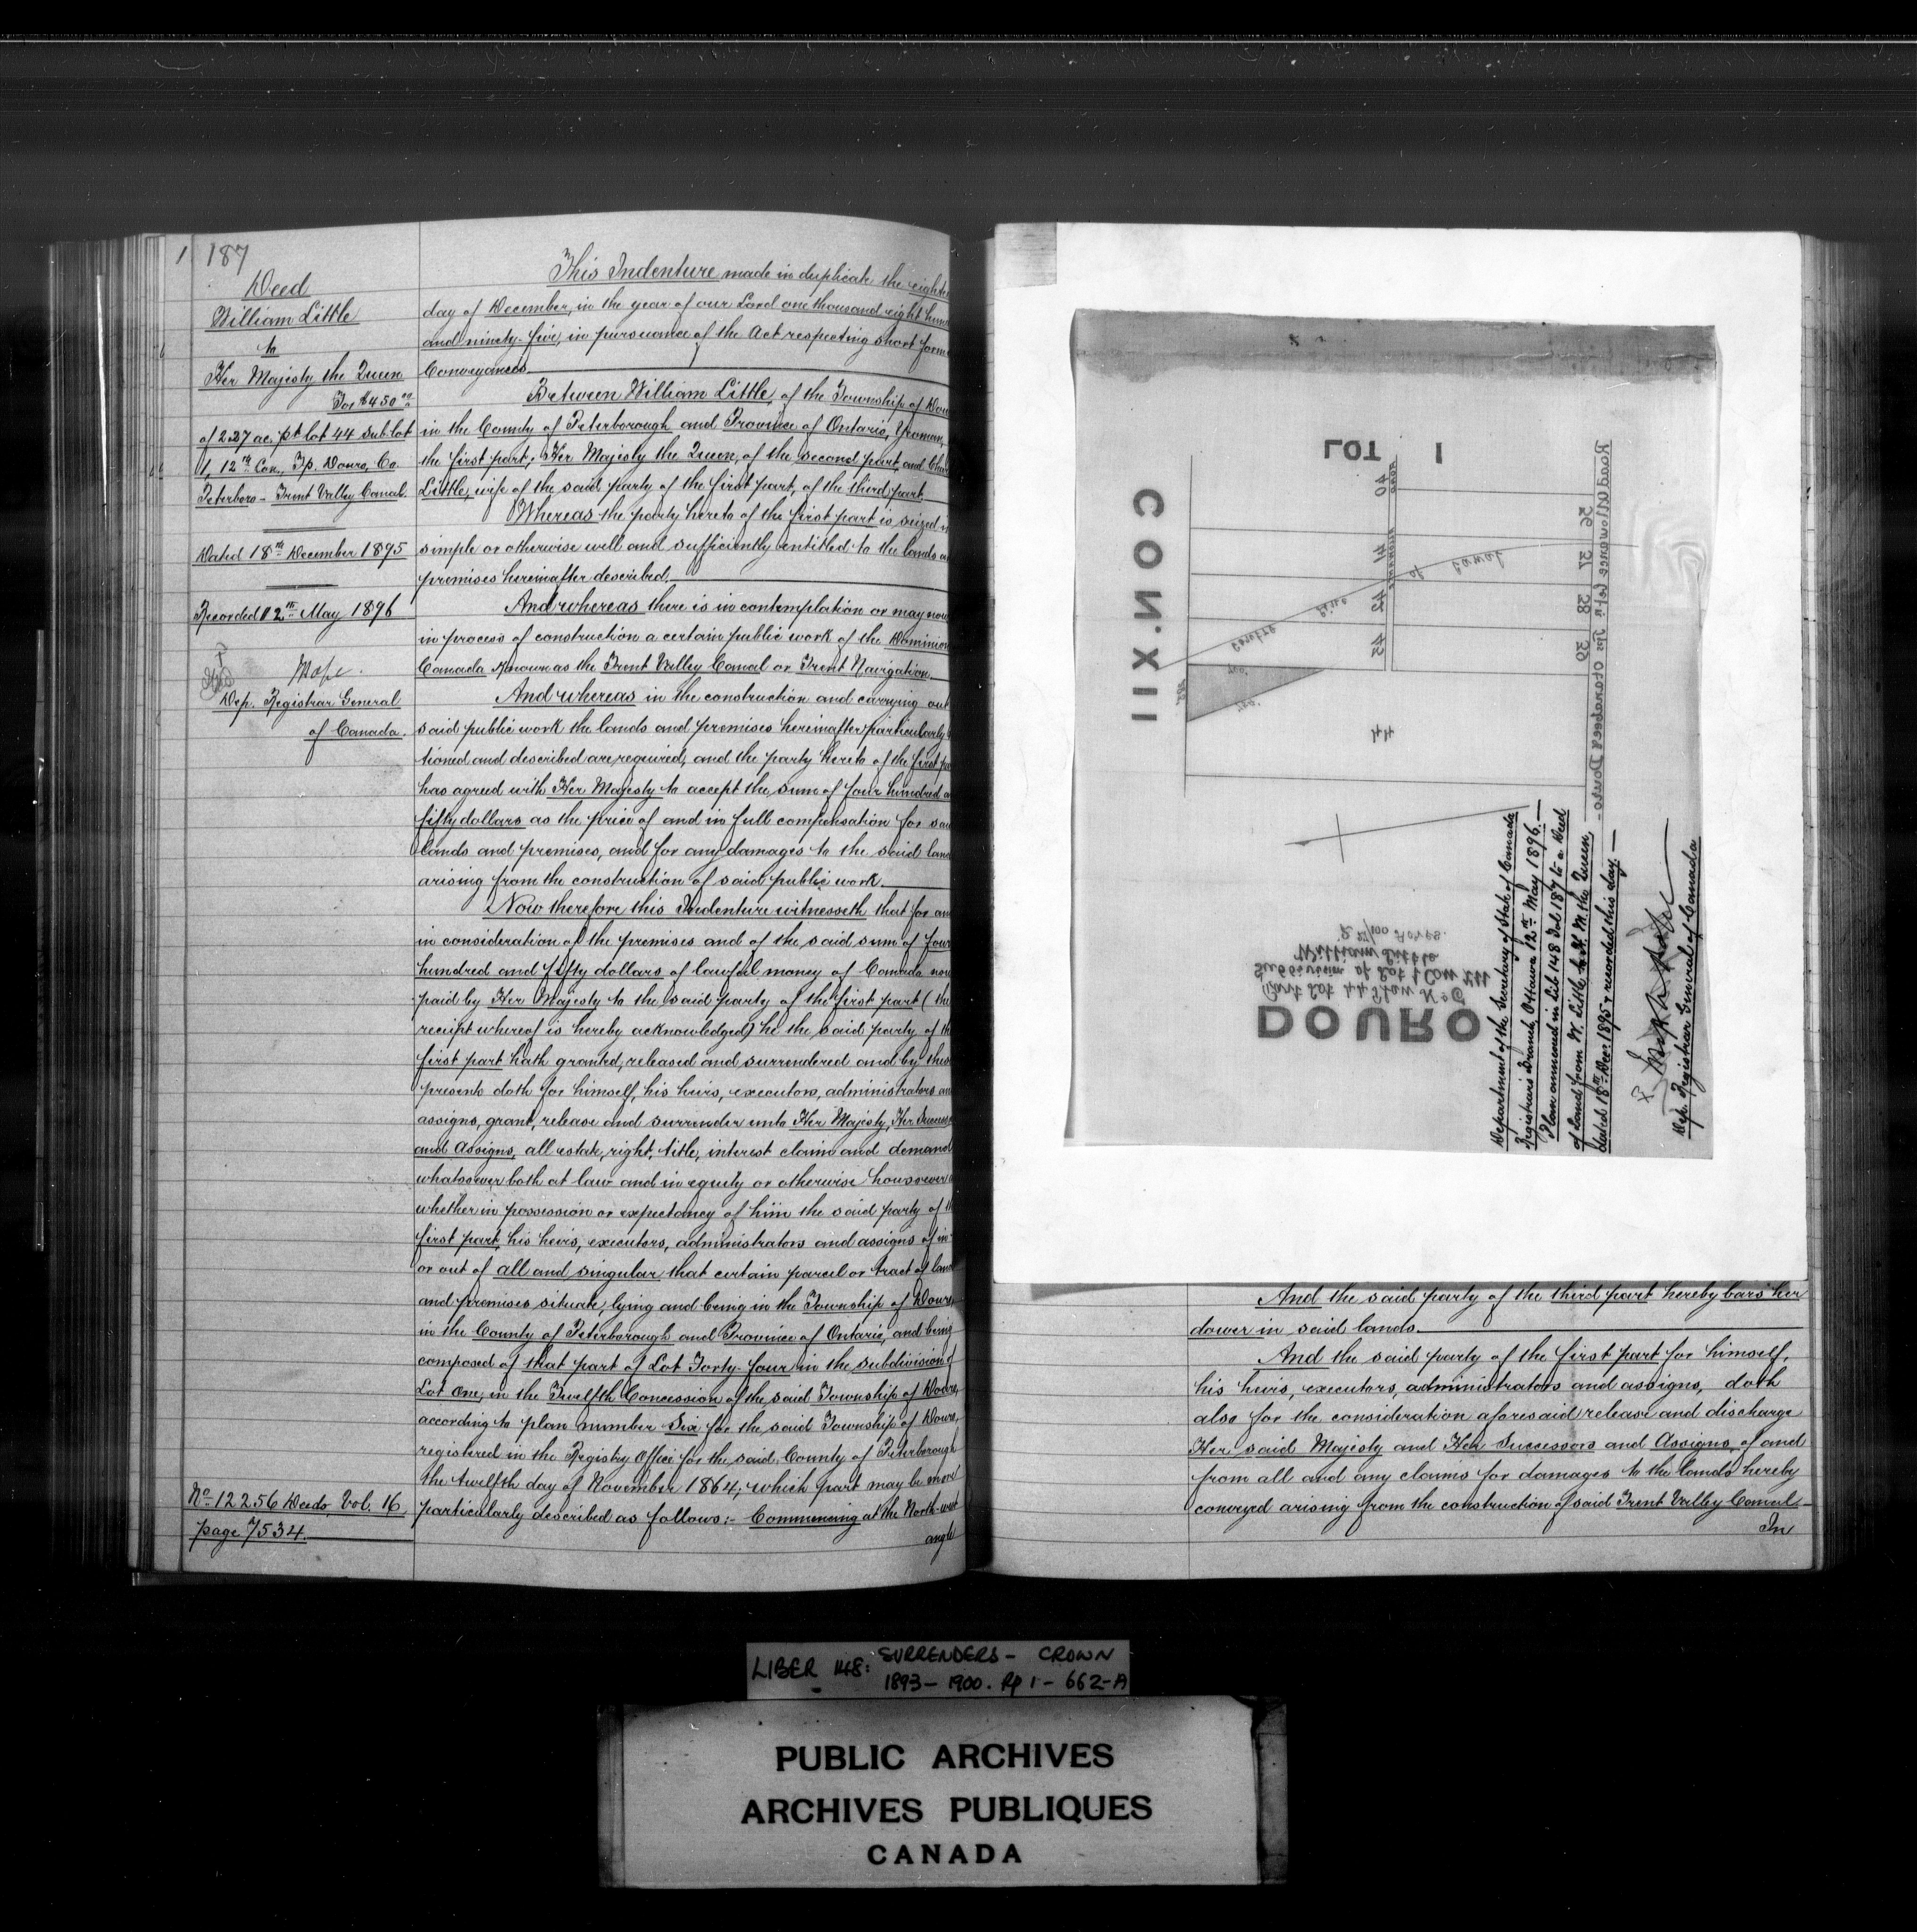 187
Deed
William Little
to
Her Majesty the Queen
For $450.00
of 2.27 ac. pt lot 44 Sub lot
1, 12th Con., Tp. Douro, Co.
Peterboro - Trent Valley Canal.
Dated 18th December 1895
Recorded 12th May 1896
Dep. Registrar General
of Canada.
No 12256 Deeds, Vol. 16
page 7534.
This Indenture made in duplicate the
day of December, in the year of our Lord one thousand eight
and ninety-five, in pursuance of the Act respecting short
Conveyances.
Between William Little, of the Township of
in the County of Peterborough and Province of Ontario, Yeoman,
the first part; Her Majesty the Queen, of the second part, and
Little, wife of the said party of the first part, of the third part.
Whereas the party hereto of the first part is seized
simple or otherwise well and sufficiently entitled to the lands
premises hereinafter described.
And whereas there is in contemplation or may now
in process of construction a certain public work of the Dominion
Canada known as the Trent Valley Canal or Trent Navigation.
And whereas in the construction and carrying out
said public work the lands and premises hereinafter particularly
tioned and described are required, and the party hereto of the first
has agreed with Her Majesty to accept the sum of four hundred
fifty dollars as the price of and in full compensation for
lands and premises, and for any damages to the said
arising from the construction of said public work.
Now therefore this Indenture witnesseth that for
in consideration of the premises and of the said sum of four
hundred and fifty dollars of lawful money of Canada now
paid by Her Majesty to the said party of the first part (the
receipt whereof is hereby acknowledged) he the said party of
first part hath granted, released and surrendered and by
presents doth for himself, his heirs, executors, administrators
assigns, grant, release and surrender unto Her Majesty, Her
and Assigns, all estate, right, title, interest claim and demand
whatsoever both at law and in equity or otherwise howsoever
whether in possession or expectancy of him the said party of
first part, his heirs, executors, administrators and assigns of in
or out of all and singular that certain parcel or tract of land
and premises situate, lying and being in the Township of Douro,
in the County of Peterborough and Province of Ontario, and being
composed of that part of Lot Forty-four in the subdivision of
Lot One, in the Twelfth Concession of the said Township of Douro,
according to plan number Six for the said Township of Douro,
registered in the Registry Office for the said County of Peterborough
the twelfth day of November 1864; which part may be more
particularly described as follows:- Commencing at the North-west
angle
LOT 1
CON. XII
40
41
42
43
36
37
38
39
44
Road Allowance betn Tps Otonabee & Douro
Centre Line of Canal
DOURO
Part Lot 44 Plan No 6
Subdivision of Lot 1 Con XII
William Little
2 27/100 Acres.
Department of the Secretary of State of Canada
Registrar's Branch, Ottawa 12th May 1896.
Plan annexed in Lib 148 Fol 187 to a Deed
of Land from W. Little to H. M. the Queen,
dated 18th Decr. 1895 & recorded this day.
Dep. Registrar General of Canada
And the said party of the third part hereby bars her
dower in said lands.
And the said party of the first part for himself,
his heirs, executors, administrators and assigns, doth
also for the consideration aforesaid release and discharge
Her said Majesty and Her Successors and Assigns, of and
from all and any claims for damages to the lands hereby
conveyed arising from the construction of said Trent Valley Canal
In
LIBER 148: SURRENDERS - CROWN
1893-1900. Pp 1-662-A
PUBLIC ARCHIVES
ARCHIVES PUBLIQUES
CANADA